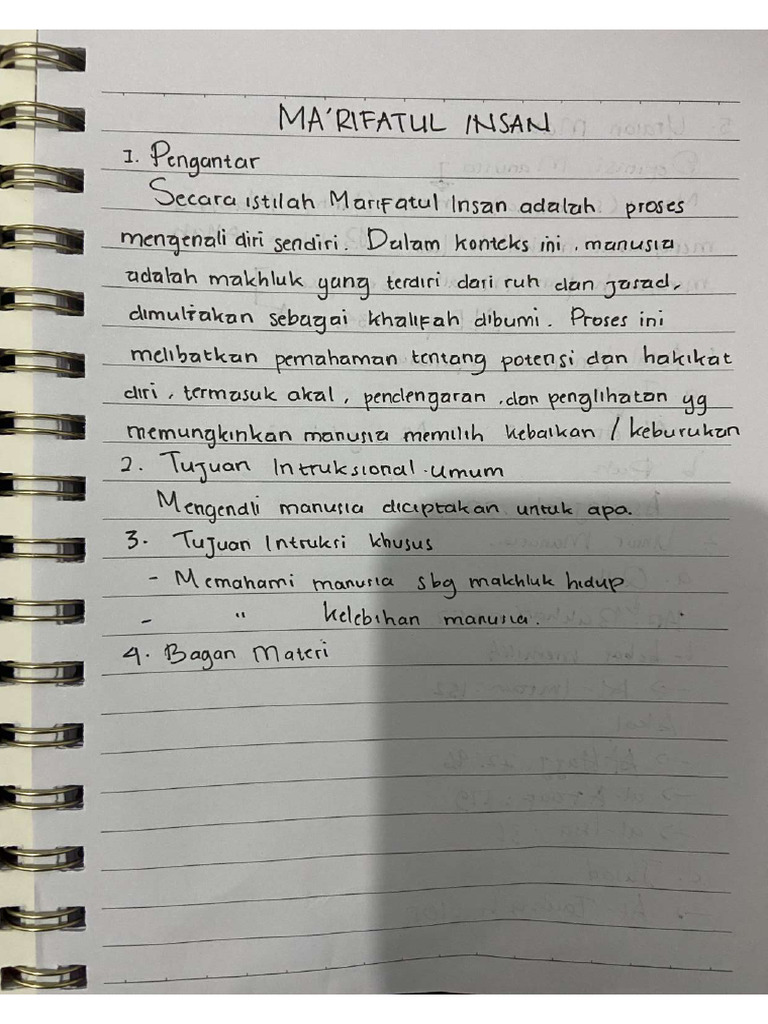 MA'RIFATUL INSAN
1. Pengantar
Secara istilah Marifatul Insan adalah proses
mengenali diri sendiri. Dalam konteks ini, manusia
adalah makhluk yang terdiri dari ruh dan jasad,
dimuliakan sebagai khalifah dibumi. Proses ini
melibatkan pemahaman tentang potensi dan hakikat
diri, termasuk akal, pendengaran, dan penglihatan yg
memungkinkan manusia memilih kebaikan / keburukan
2. Tujuan Intruksional Umum
Mengendli manusia diciptakan untuk apa.
3. Tujuan Intruksi khusus
- Memahami manusia sbg makhluk hidup
- " kelebihan manusia.
4. Bagan Materi